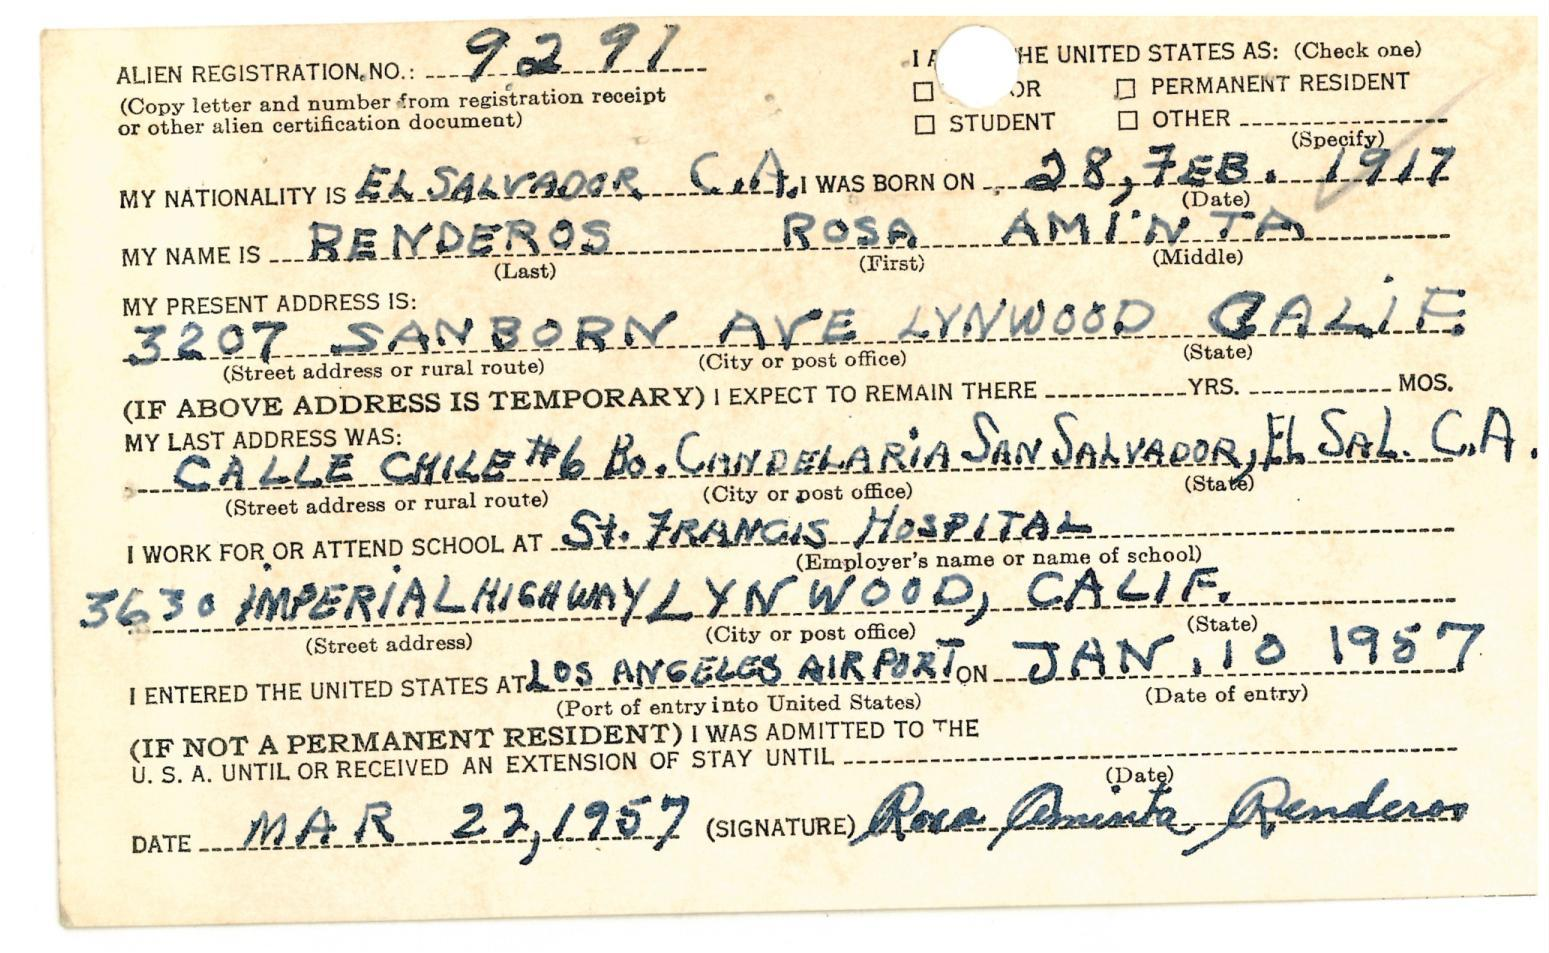 ALIEN REGISTRATION NO.: 9291
I A HE UNITED STATES AS: (Check one)
(Copy letter and number from registration receipt
or other alien certification document)
☐ OR ☐ PERMANENT RESIDENT
☐ STUDENT ☐ OTHER
(Specify)
MY NATIONALITY IS EL SALVADOR C.A. I WAS BORN ON 28, FEB. 1917
(Date)
MY NAME IS RENDEROS ROSA AMINTA
(Last) (First) (Middle)
MY PRESENT ADDRESS IS:
3207 SANBORN AVE LYNWOOD CALIF.
(Street address or rural route) (City or post office) (State)
(IF ABOVE ADDRESS IS TEMPORARY) I EXPECT TO REMAIN THERE YRS. MOS.
MY LAST ADDRESS WAS:
CALLE CHILE #6 Bo. CANDELARIA SAN SALVADOR, EL SAL. C.A.
(Street address or rural route) (City or post office) (State)
I WORK FOR OR ATTEND SCHOOL AT St. FRANCIS HOSPITAL
(Employer's name or name of school)
3630 IMPERIAL HIGHWAY LYNWOOD, CALIF.
(Street address) (City or post office) (State)
I ENTERED THE UNITED STATES AT LOS ANGELES AIRPORT ON JAN. 10 1957
(Port of entry into United States) (Date of entry)
(IF NOT A PERMANENT RESIDENT) I WAS ADMITTED TO THE
U. S. A. UNTIL OR RECEIVED AN EXTENSION OF STAY UNTIL
(Date)
DATE MAR 22, 1957 (SIGNATURE) Rosa Aminta Renderos